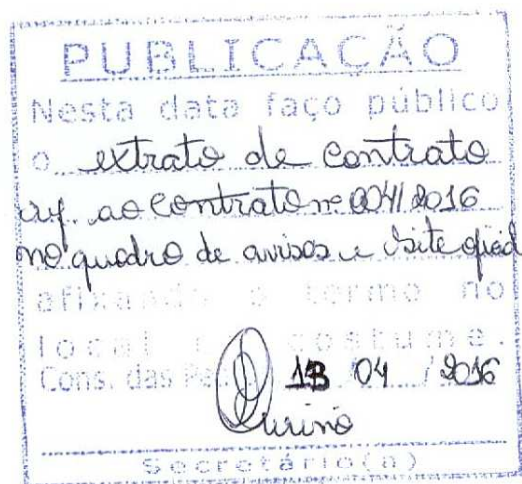 PUBLICAÇÃO
Nesta data faço público
o extrato de contrato
ref ao contrato nº 004/2016
no quadro de avisos e site oficial
afixando o termo no
local costume.
Cons. das 13 / 04 / 2016
Secretário(a)